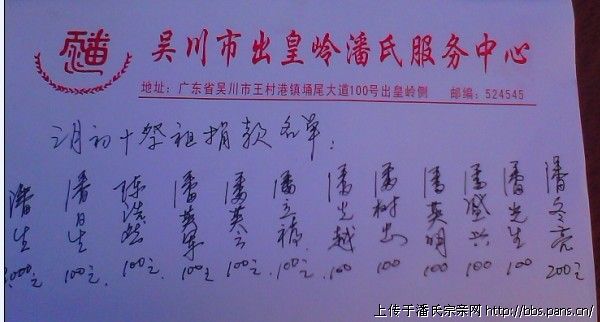 吴川市出皇岭潘氏服务中心
地址：广东省吴川市王村港镇埇尾大道100号出皇岭侧 邮编：524545
二月初十祭祖捐款名单：
潘生 000元
潘日生 100元
陈浩然 100元
潘英军 100元
潘英
100元
潘立禧 100元
潘光越 100
潘树忠 100
潘英明 100
潘盛兴 100
潘先生 100
潘冬亮 200元
上传于潘氏宗亲网 http://bbs.pans.cn/